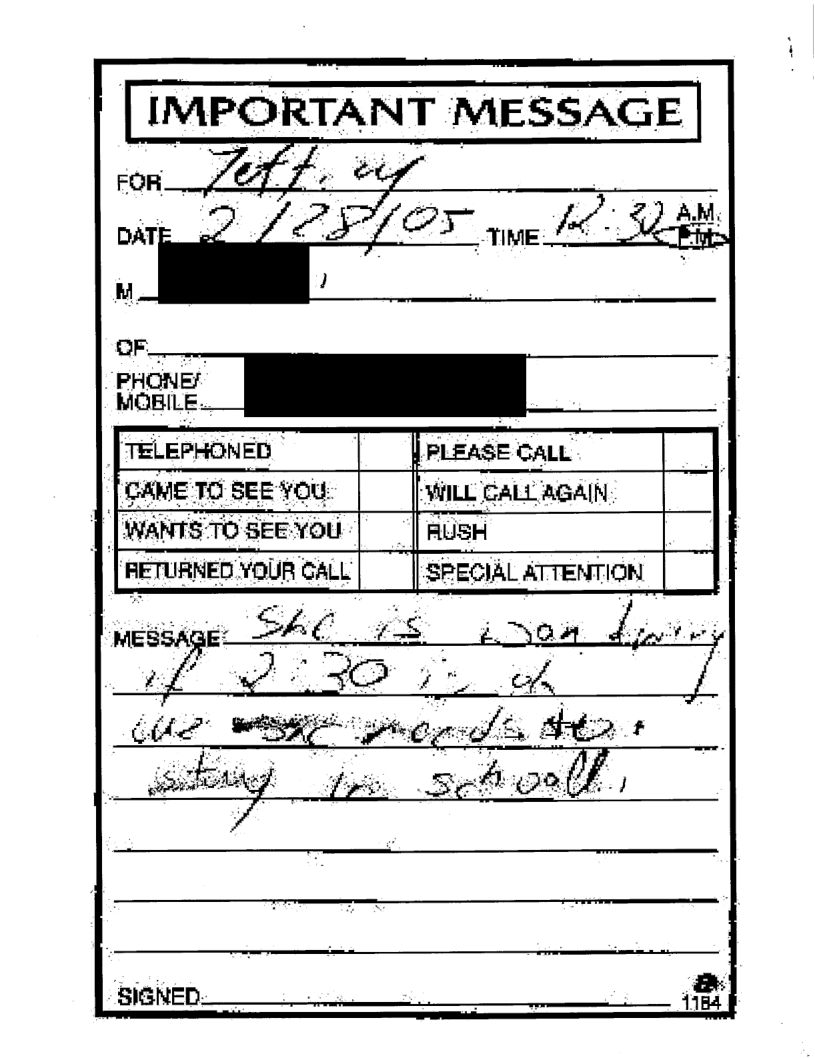 IMPORTANT MESSAGE
FOR Jeffrey
DATE 2/28/05 TIME 12:30 A.M.
P.M.
M
OF
PHONE/
MOBILE
TELEPHONED PLEASE CALL
CAME TO SEE YOU WILL CALL AGAIN
WANTS TO SEE YOU RUSH
RETURNED YOUR CALL SPECIAL ATTENTION
MESSAGE She is wondering
if 2:30 is ok
cuz she needs to
stay in school.
SIGNED
1184